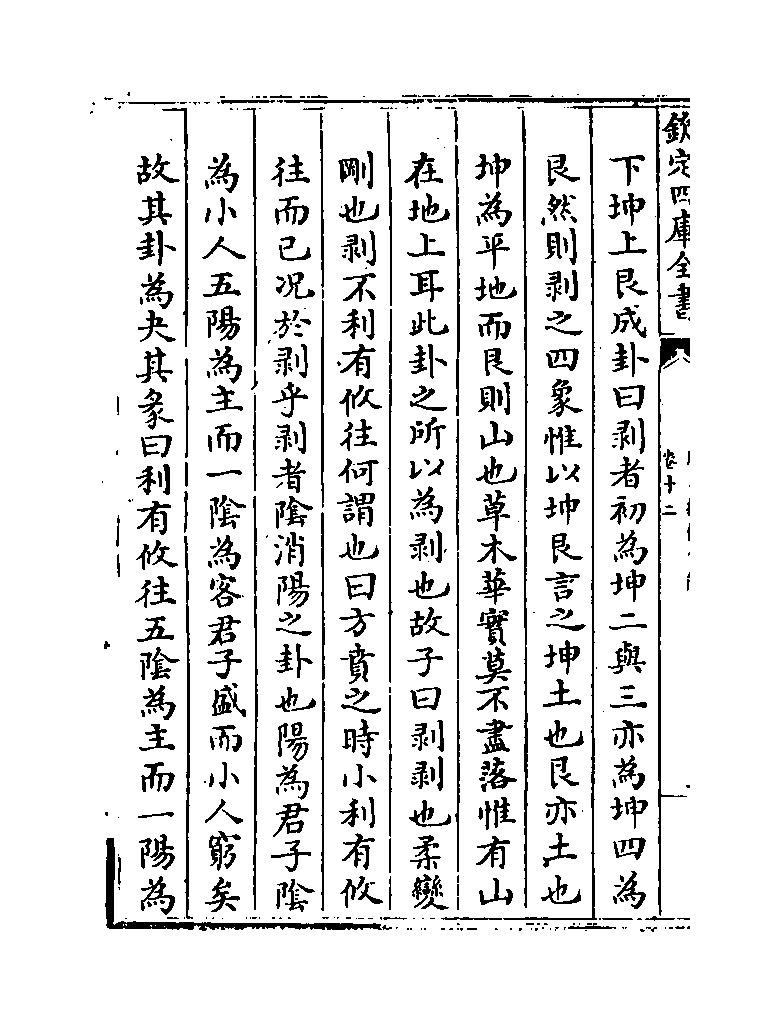 欽定四庫全書
卷十二
下坤上艮成卦曰剥者初為坤二與三亦為坤四為
艮然則剥之四象惟以坤艮言之坤土也艮亦土也
坤為平地而艮則山也草木華實莫不盡落惟有山
在地上耳此卦之所以為剥也故子曰剥剥也柔變
剛也剥不利有攸往何謂也曰方賁之時小利有攸
往而已况於剥乎剥者隂消陽之卦也陽為君子隂
為小人五陽為主而一隂為客君子盛而小人窮矣
故其卦為夬其彖曰利有攸往五隂為主而一陽為